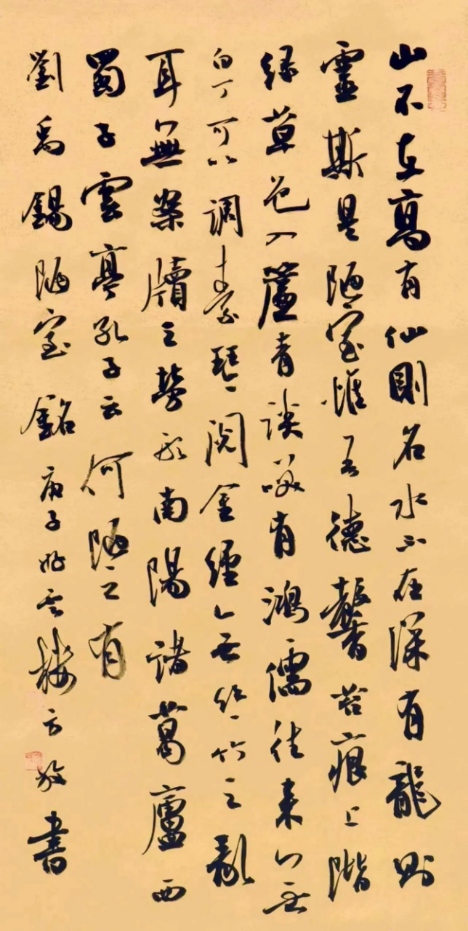 山不在高有仙則名水不在深有龍則
靈斯是陋室惟吾德馨苔痕上階
綠草色入簾青談笑有鴻儒往來無
白丁可以調素琴閱金經無絲竹之亂
耳無案牘之勞形南陽諸葛廬西
蜀子雲亭孔子云何陋之有
劉禹錫陋室銘庚子雲樓方敬書